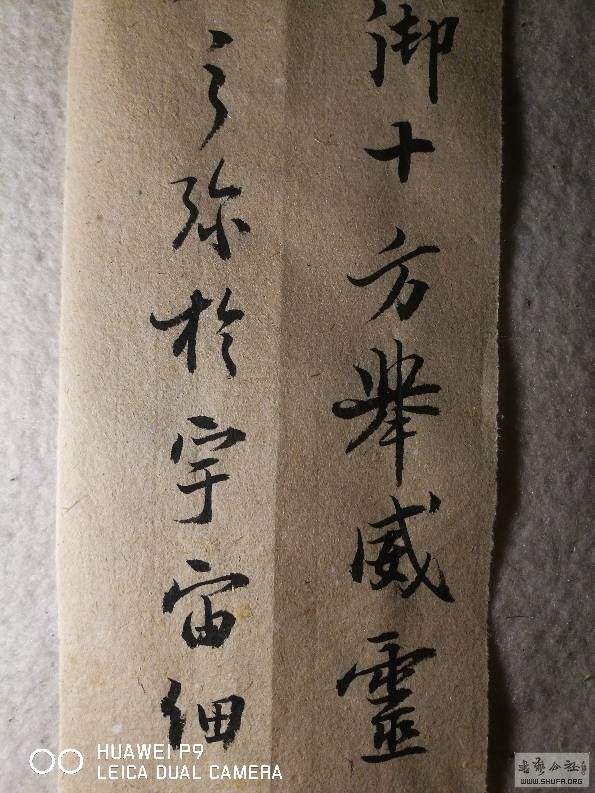 御十方舉威靈
之弥於宇宙細
HUAWEI P9
LEICA DUAL CAMERA
书法公社
WWW.SHUFA.ORG